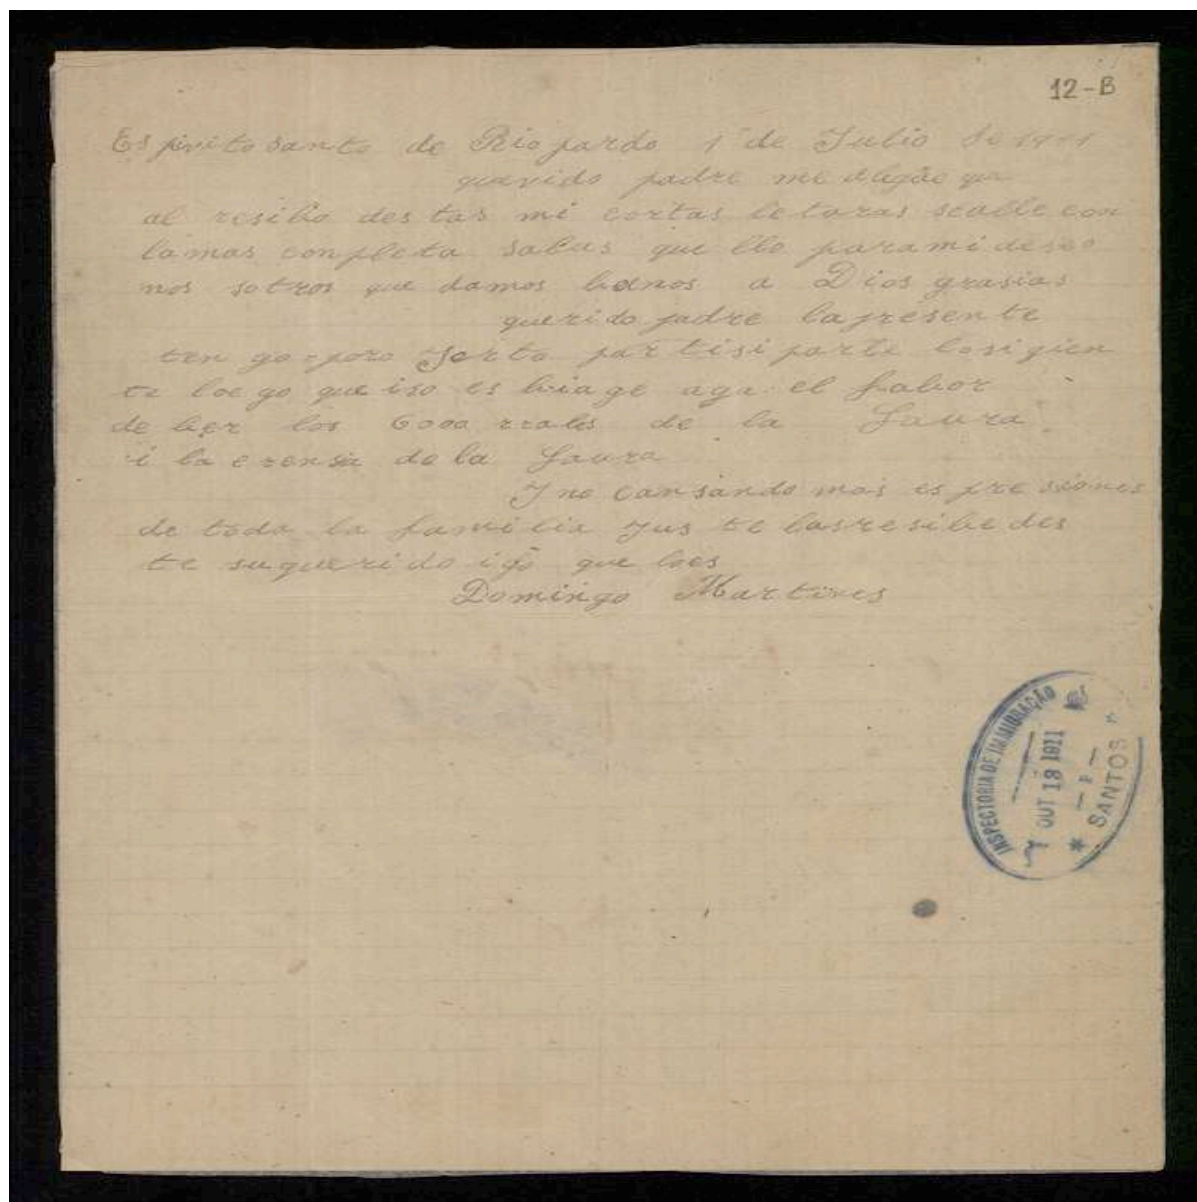 12-B
Espirito santo de Rio pardo 1º de Julio de 1911
querido padre me alegãe que
al resibo des tas mi cortas letaras se alle con
la mas conpleta salus que llo para mi deseo
nos sotros que damos buenos a Dios grasias
querido padre la presente
ten go = poro Jorto par tisi parle lo sigien
te loe go que iso es biage aga el fabor
de ber los 6000 reales de la Laura
i la erensia de la Laura
I no cansando mas es pre siones
de toda la familia Jus te las resibe des
te su queri do ijo que loes
Domingo Martines
INSPECTORIA DE IMMIGRAÇÃO
OUT 18 1911
SANTOS